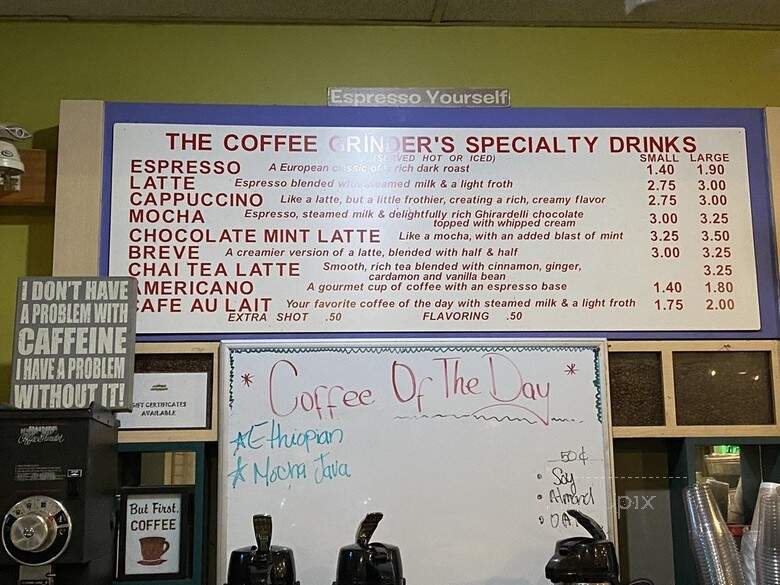 Espresso Yourself
THE COFFEE GRINDER'S SPECIALTY DRINKS
(SERVED HOT OR ICED)
SMALL LARGE
ESPRESSO A European classic of rich dark roast 1.40 1.90
LATTE Espresso blended with steamed milk & a light froth 2.75 3.00
CAPPUCCINO Like a latte, but a little frothier, creating a rich, creamy flavor 2.75 3.00
MOCHA Espresso, steamed milk & delightfully rich Ghirardelli chocolate 3.00 3.25
topped with whipped cream
CHOCOLATE MINT LATTE Like a mocha, with an added blast of mint 3.25 3.50
BREVE A creamier version of a latte, blended with half & half 3.00 3.25
CHAI TEA LATTE Smooth, rich tea blended with cinnamon, ginger, 3.25
cardamon and vanilla bean
AMERICANO A gourmet cup of coffee with an espresso base 1.40 1.80
CAFE AU LAIT Your favorite coffee of the day with steamed milk & a light froth 1.75 2.00
EXTRA SHOT .50 FLAVORING .50
I DON'T HAVE
A PROBLEM WITH
CAFFEINE
I HAVE A PROBLEM
WITHOUT IT!
GIFT CERTIFICATES
AVAILABLE
* Coffee Of The Day *
Ethiopian
Mocha Java
50¢
• Soy
• Almond
But First,
COFFEE